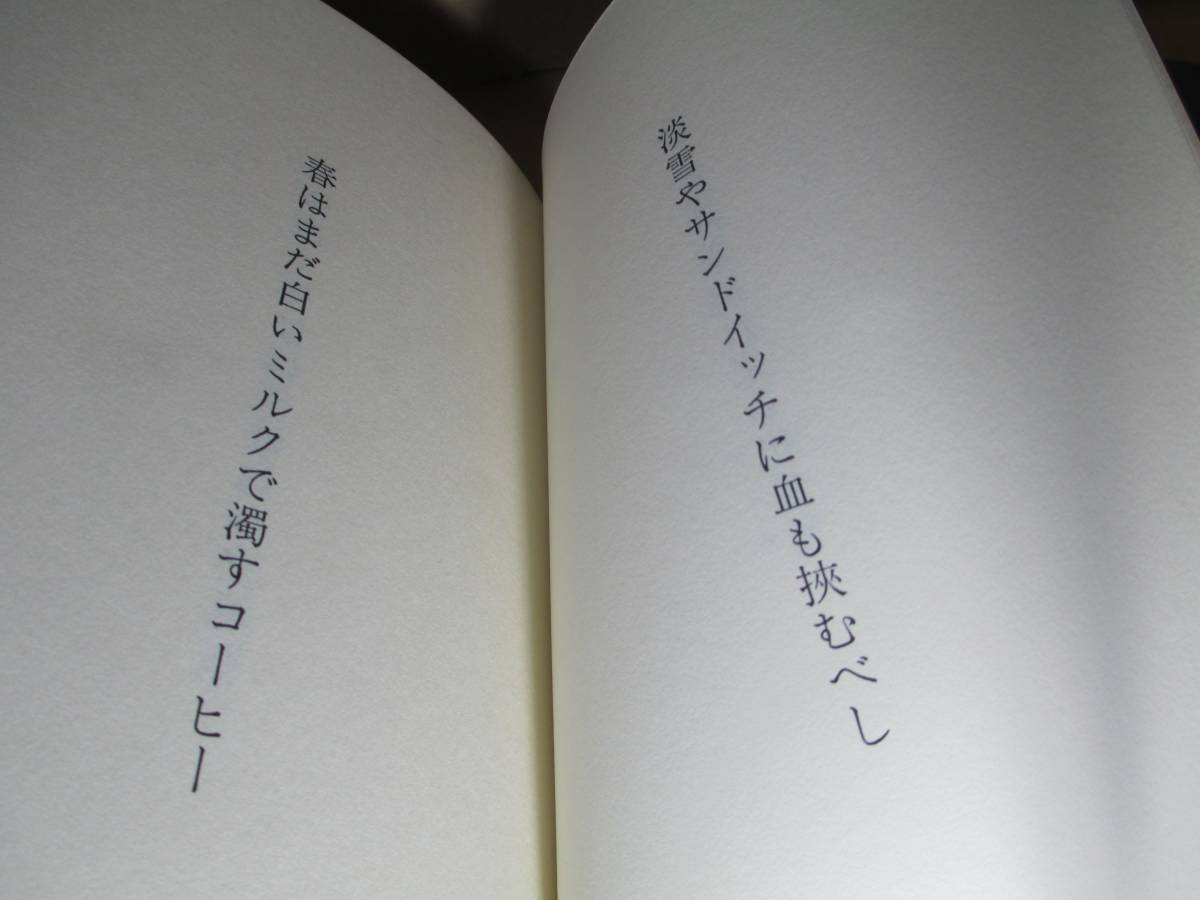 淡雪やサンドイッチに血も挾むべし
春はまだ白いミルクで濁すコーヒー